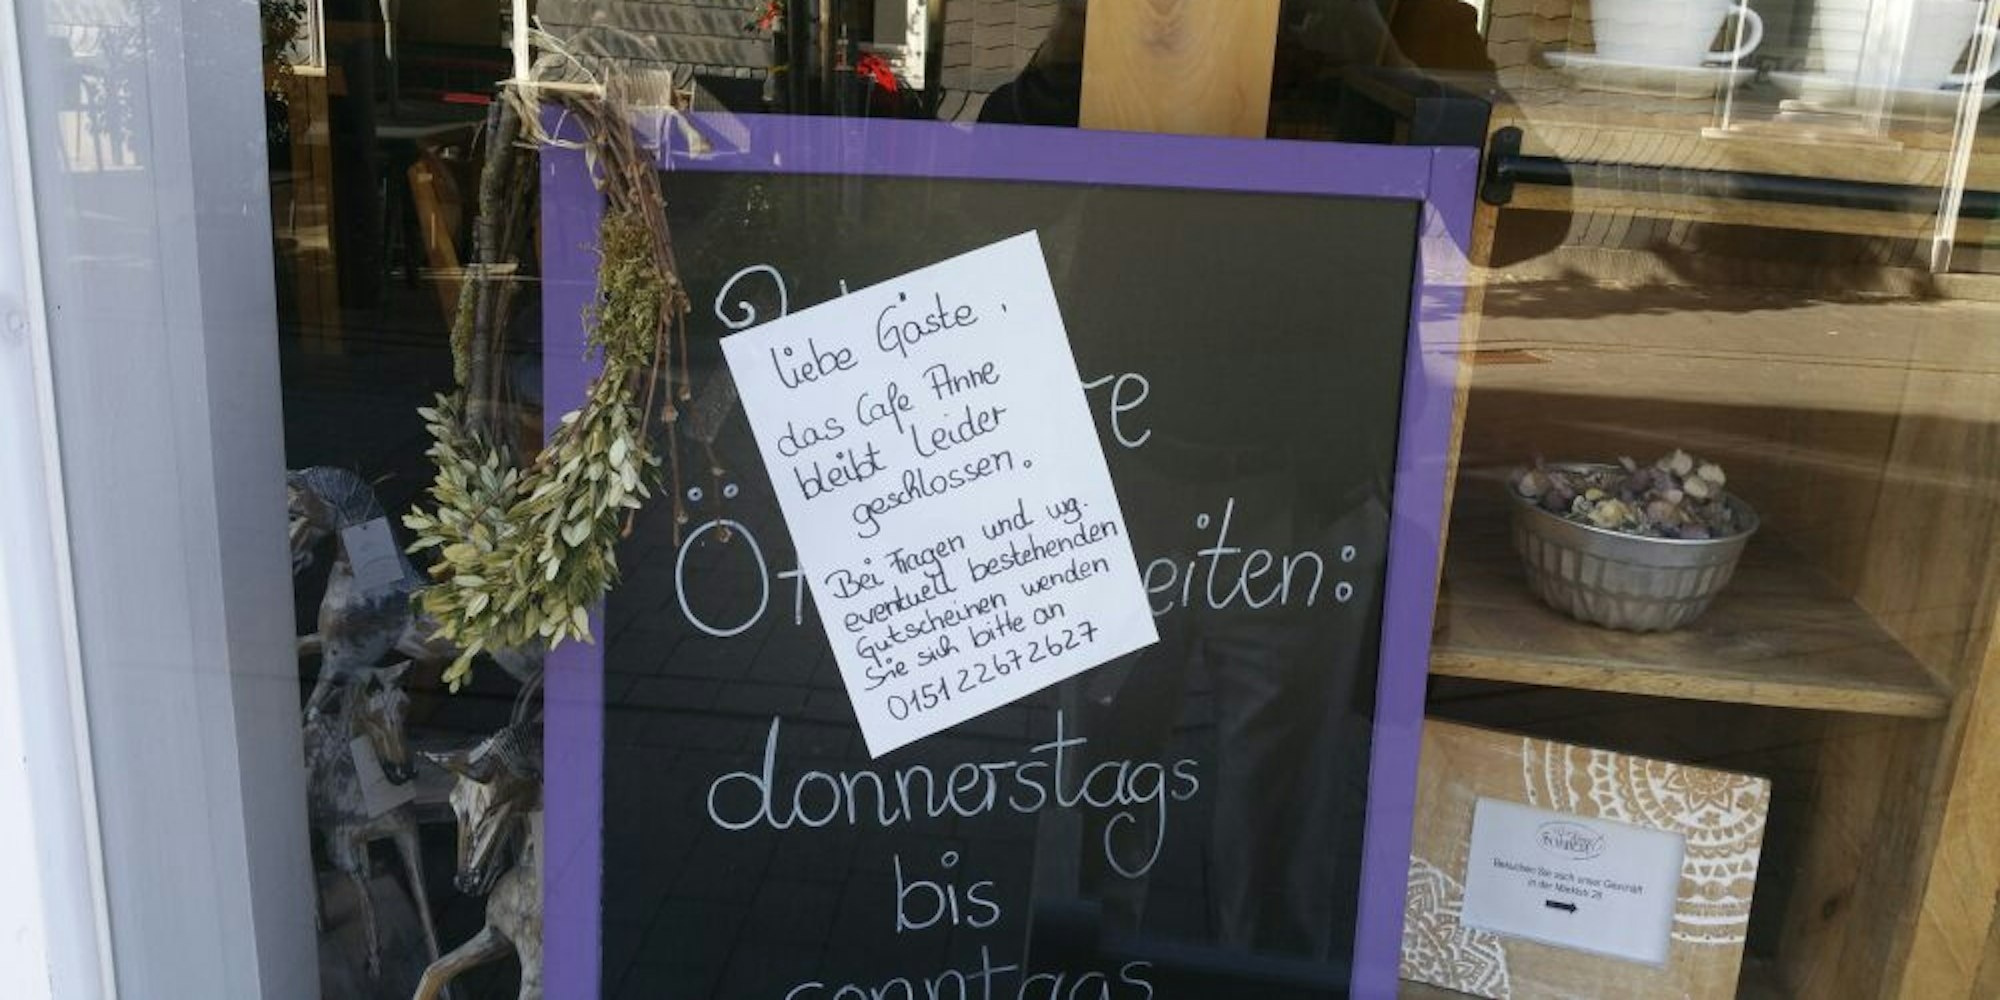 liebe Gäste,
das Cafe Anne
bleibt leider
geschlossen.
Bei Fragen und wg.
eventuell bestehenden
Gutscheinen wenden
Sie sich bitte an
0151 2267 2627
re
Öf eiten:
donnerstags
bis
sonntags
Besuchen Sie auch unser Geschäft
in der Marktstr. 28